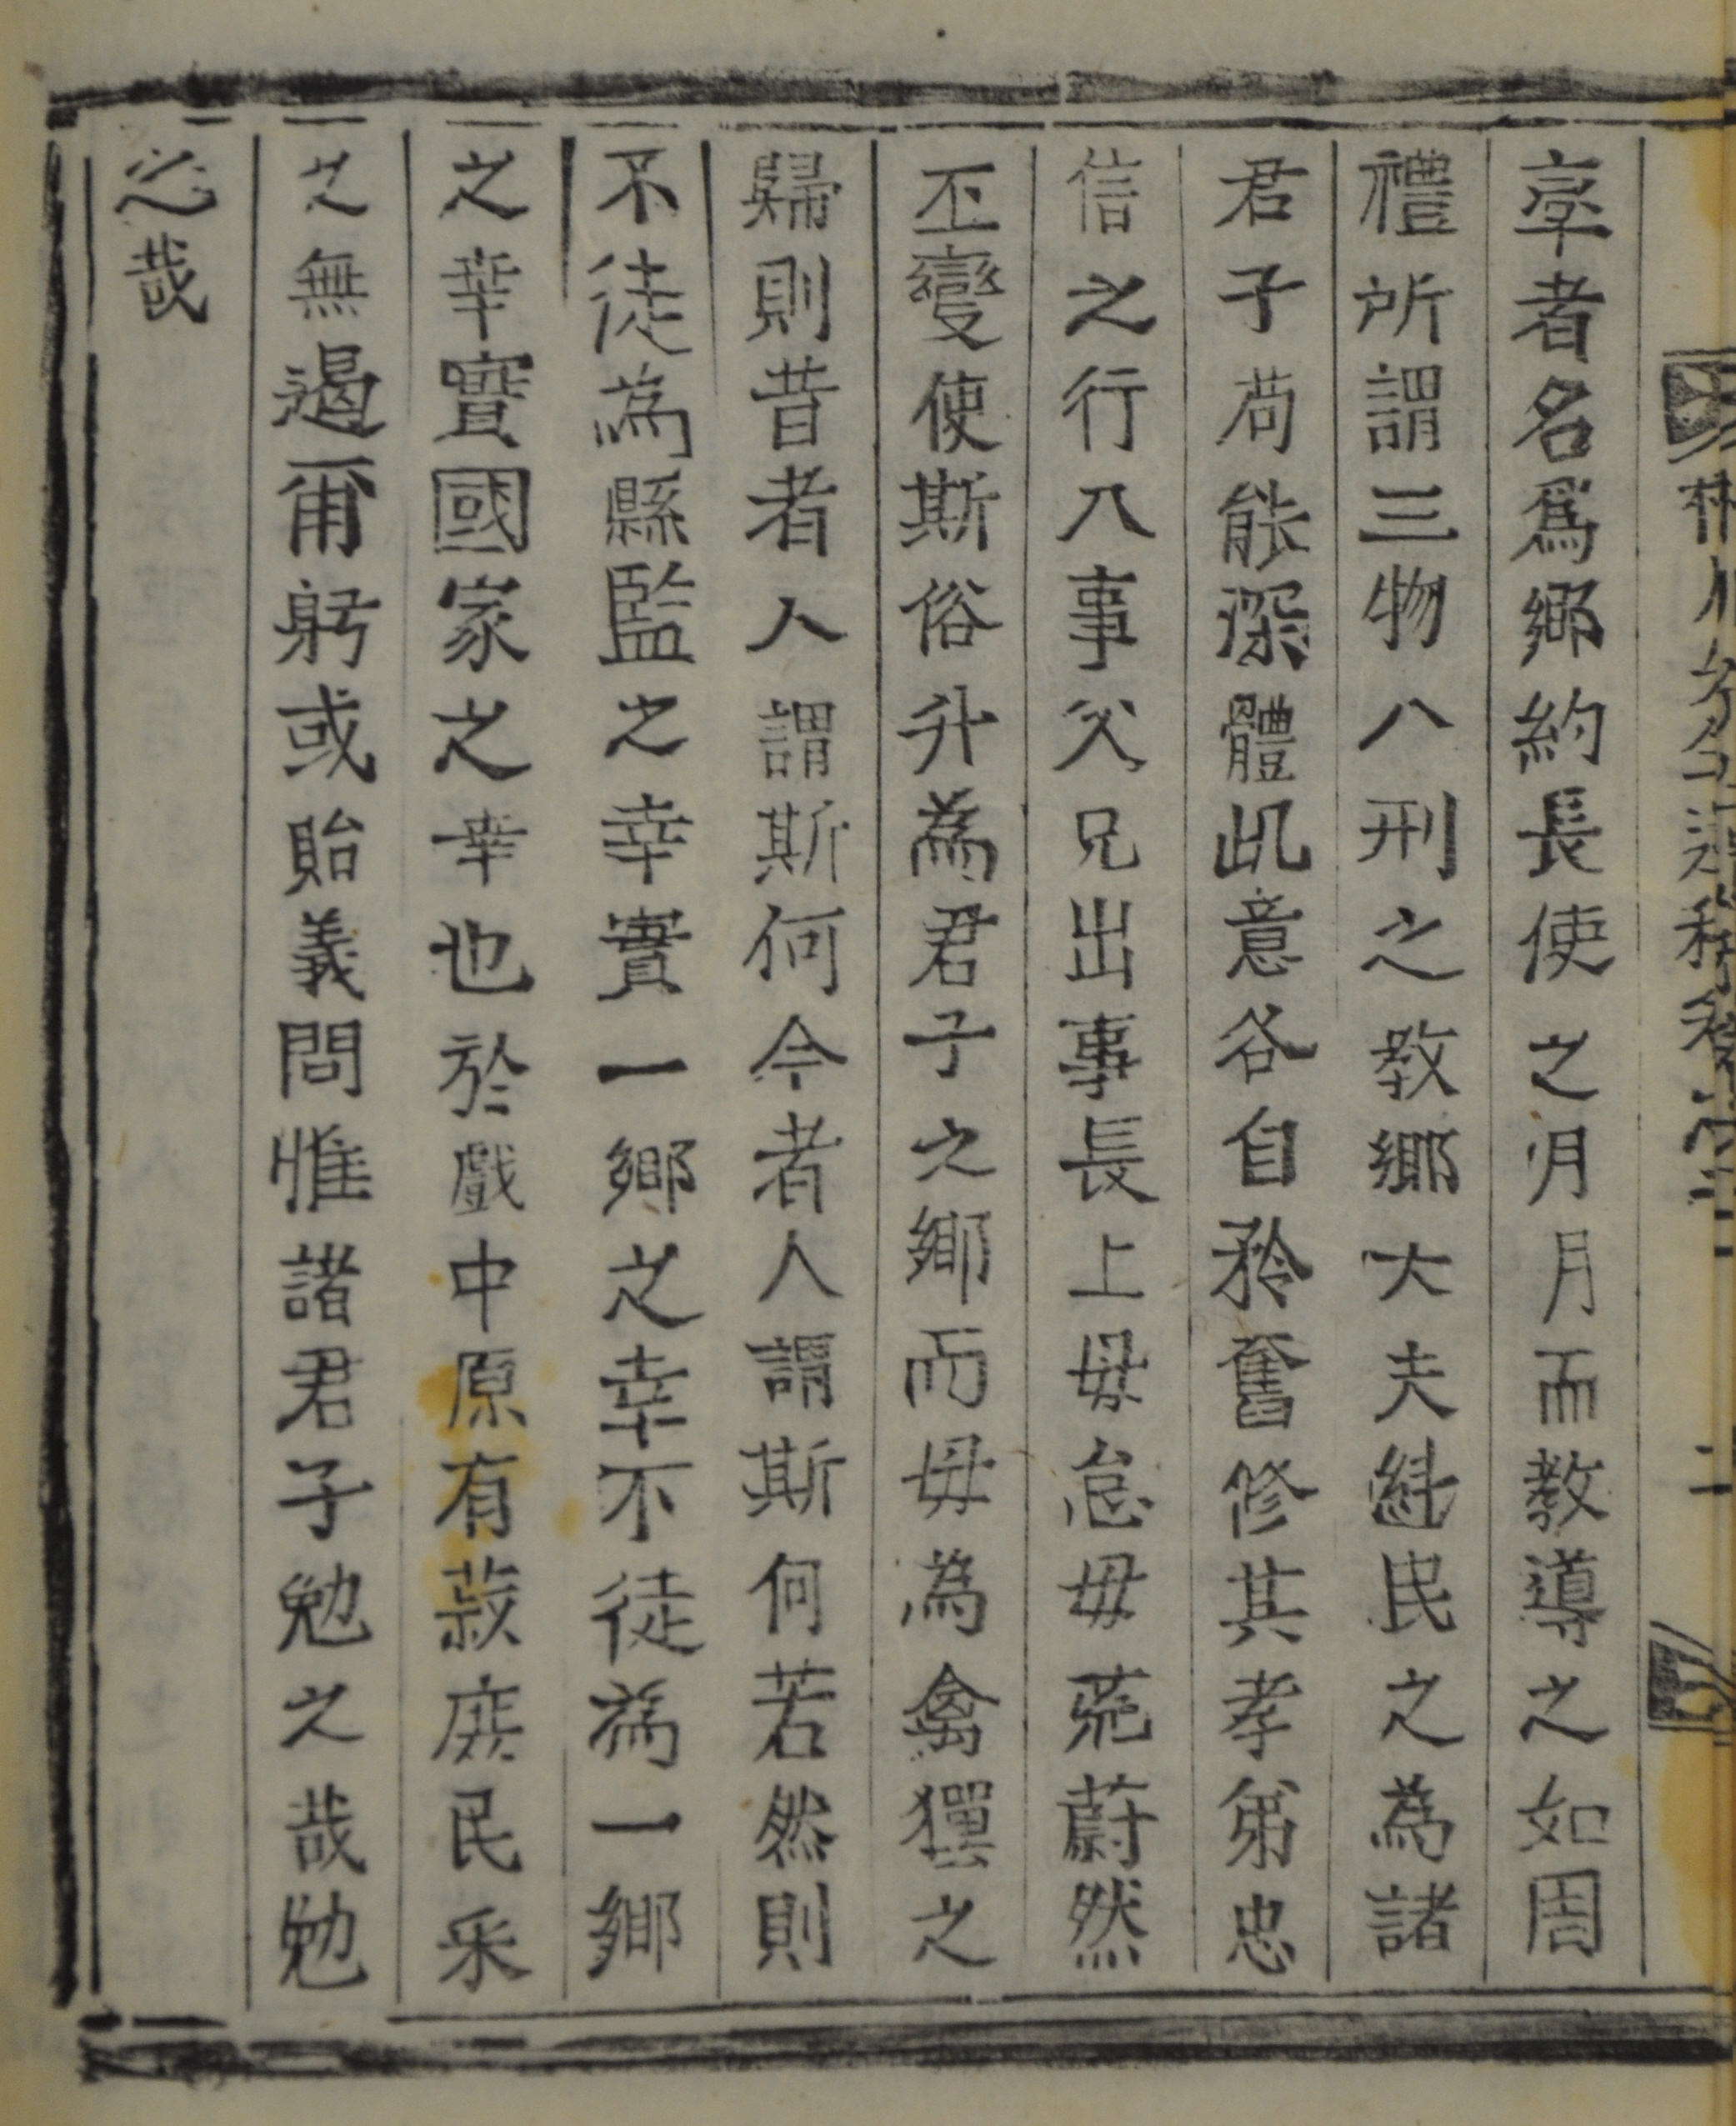 辜者名爲鄕約長使之月月而教導之如周
禮所謂三物八刑之教鄕大夫紏民之為諸
君子苟能深體此意各自矜奮修其孝弟忠
信之行入事父兄出事長上毋怠毋荒蔚然
丕變使斯俗升為君子之鄕而毋為禽獸之
歸則昔者人謂斯何今者人謂斯何若然則
不徒為縣監之幸實一鄕之幸不徒為一鄕
之幸實國家之幸也於戲中原有菽庶民采
之無遏爾躬或貽義問惟諸君子勉之哉勉
之哉
二